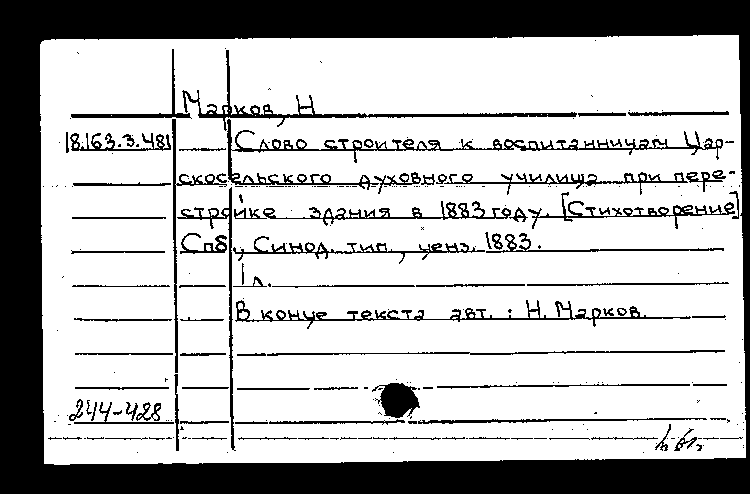 Марков, Н
18.163.3.481 Слово строителя к воспитанницам Цар-
скосельского духовного училища при пере-
стройке здания в 1883 году. [Стихотворение]
Спб., Синод. тип., ценз. 1883.
1 л.
В конце текста авт.: Н. Марков.
244-428